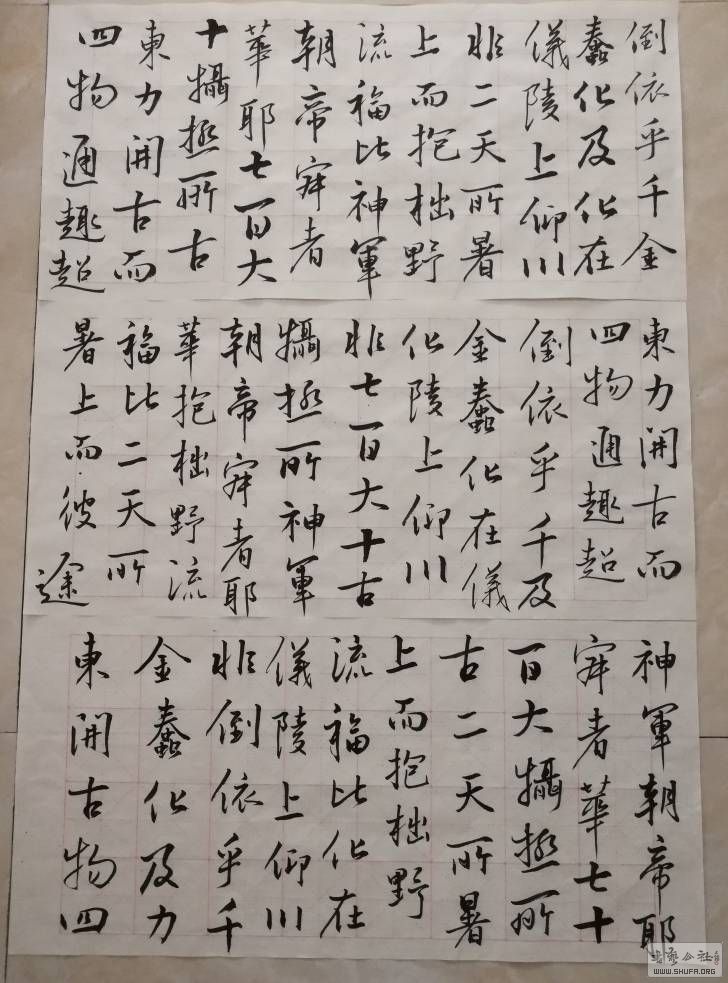 倒依乎千金
蠢化及化在
儀陵上仰川
非二天所暑
上而抱柮野
流福比神軍
朝帝寐者
華耶七百大
十攝拯所古
東力開古而
四物通趣超
東力開古而
四物通趣超
倒依乎千及
金蠢化在儀
化陵上仰川
非七百大十古
攝拯所神軍
朝帝寐者耶
華抱柮野流
福比二天所
暑上而彼途
神軍朝帝耶
寐者華七十
百大攝拯所
古二天所暑
上而抱柮野
流福比化在
儀陵上仰川
非倒依乎千
金蠢化及力
東開古物四
書法公社
WWW.SHUFA.ORG